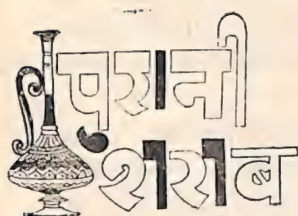 पुरानी
शराब